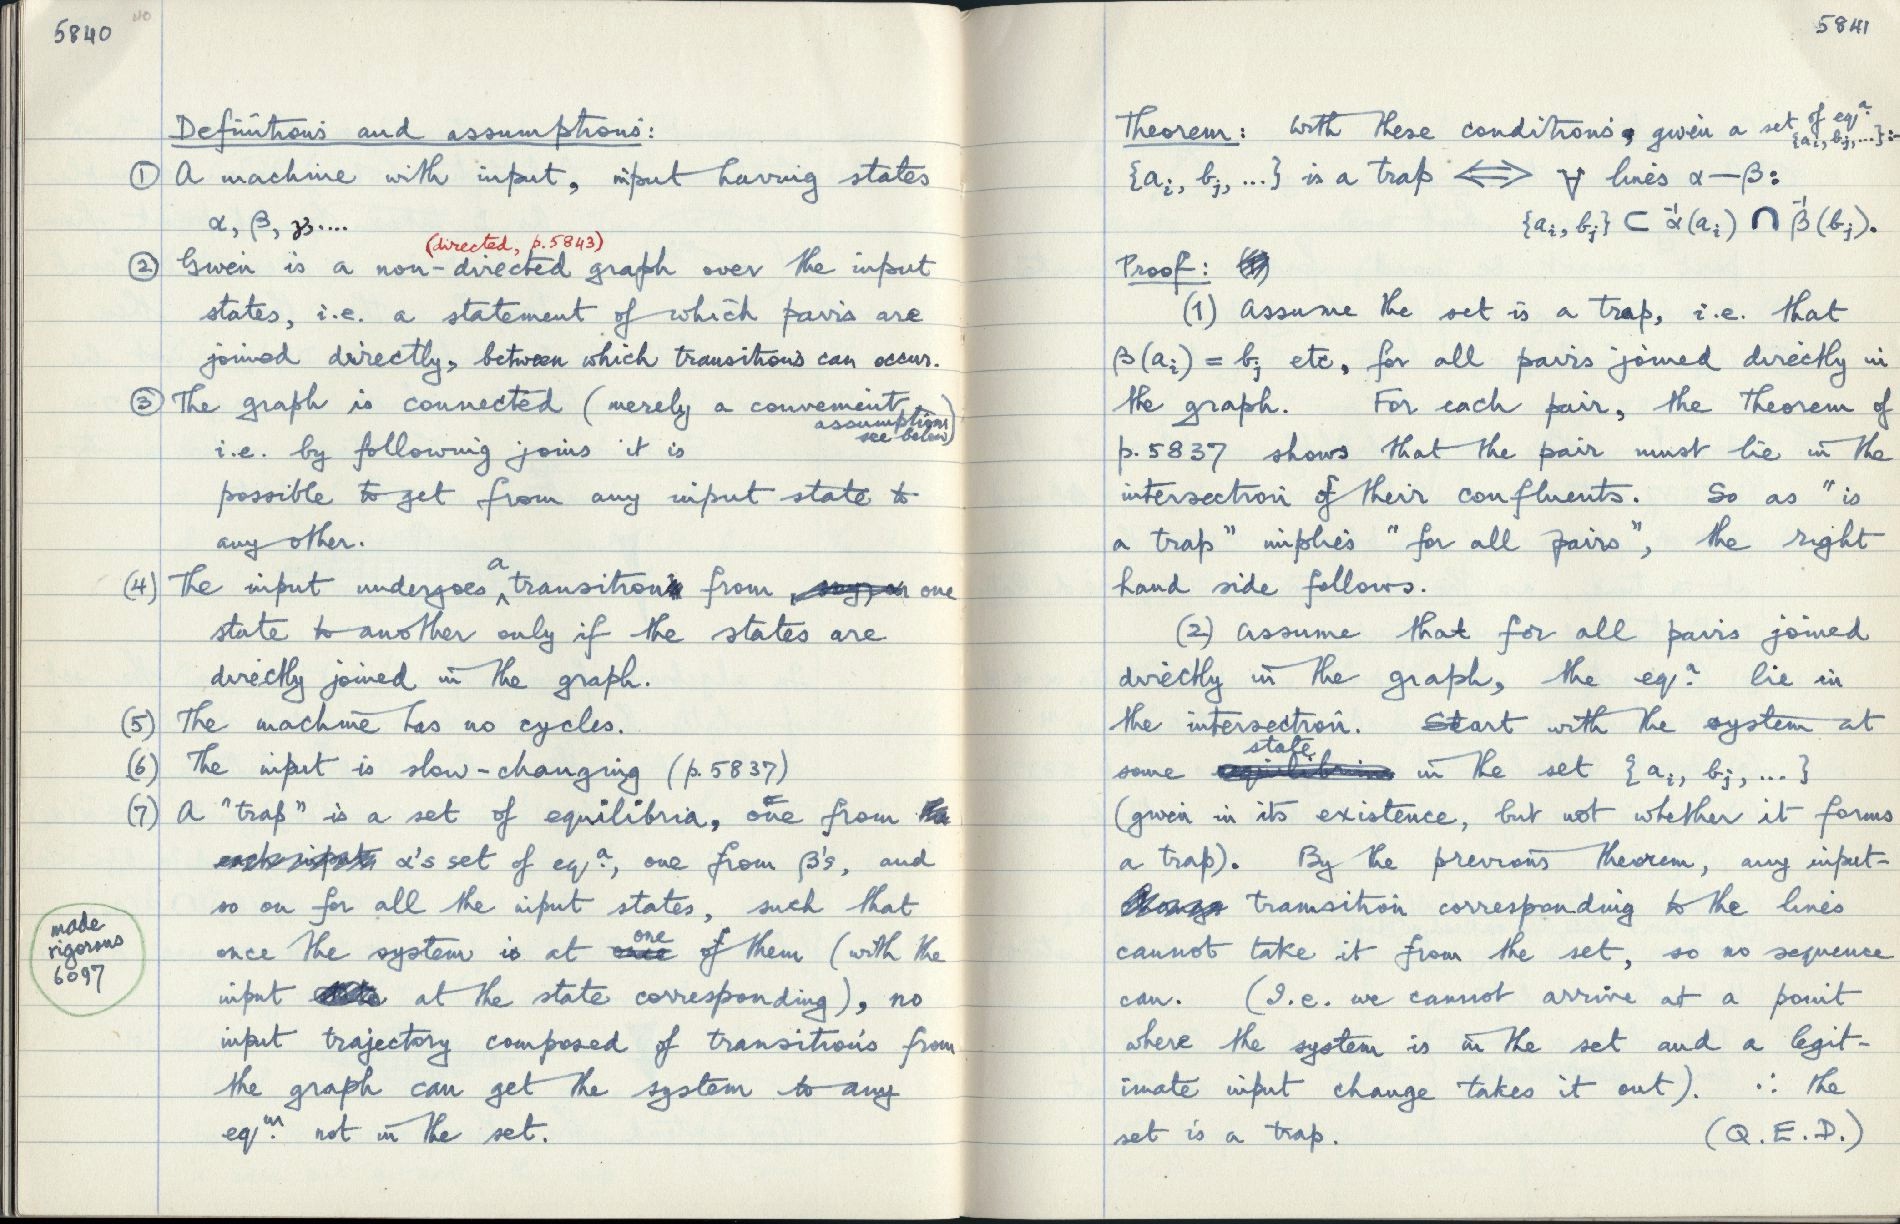 5840
NO
Definitions and assumptions:
① A machine with input, input having states
α, β, γ....
(directed, p.5843)
② Given is a non-directed graph over the input
states, i.e. a statement of which pairs are
joined directly, between which transitions can occur.
③ The graph is connected (merely a convenient
assumption
see below)
i.e. by following joins it is
possible to get from any input state to
any other.
(4) The input undergoes a transition from one
state to another only if the states are
directly joined in the graph.
(5) The machine has no cycles.
(6) The input is slow-changing (p.5837)
(7) A "trap" is a set of equilibria, one from
α's set of eqª., one from β's, and
so on for all the input states, such that
once the system is at one of them (with the
input at the state corresponding), no
input trajectory composed of transitions from
the graph can get the system to any
eqᵐ. not in the set.
made
rigorous
6097
5841
Theorem: With these conditions, given a set of eqª.
{aᵢ, bⱼ, ...}:-
{aᵢ, bⱼ, ...} is a trap ⟺ ∀ lines α—β:
{aᵢ, bⱼ} ⊂ α⁻¹(aᵢ) ∩ β⁻¹(bⱼ).
Proof:
(1) Assume the set is a trap, i.e. that
β(aᵢ) = bⱼ etc, for all pairs joined directly in
the graph. For each pair, the Theorem of
p.5837 shows that the pair must lie in the
intersection of their confluents. So as "is
a trap" implies "for all pairs", the right
hand side follows.
(2) Assume that for all pairs joined
directly in the graph, the eqª. lie in
the intersection. Start with the system at
some state in the set {aᵢ, bⱼ, ...}
(given in its existence, but not whether it forms
a trap). By the previous theorem, any input-
transition corresponding to the lines
cannot take it from the set, so no sequence
can. (I.e. we cannot arrive at a point
where the system is in the set and a legit-
imate input change takes it out). ∴ the
set is a trap. (Q.E.D.)